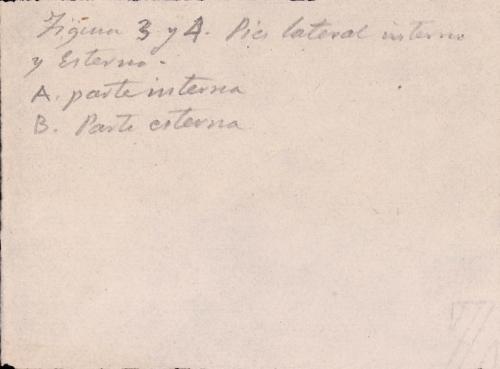 Figura 3 y 4. Pies lateral interno
y Esterno.
A. parte interna
B. Parte esterna